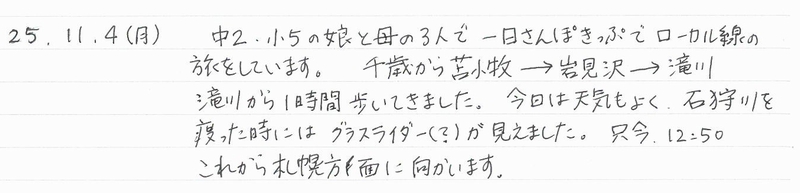 25.11.4(月) 中2.小5の娘と母の3人で一日さんぽきっぷでローカル線の
旅をしています。 千歳から苫小牧→岩見沢→滝川
滝川から1時間歩いてきました。 今日は天気もよく、石狩川を
渡った時にはグラスライダー(?)が見えました。 只今、12:50
これから札幌方面に向かいます。